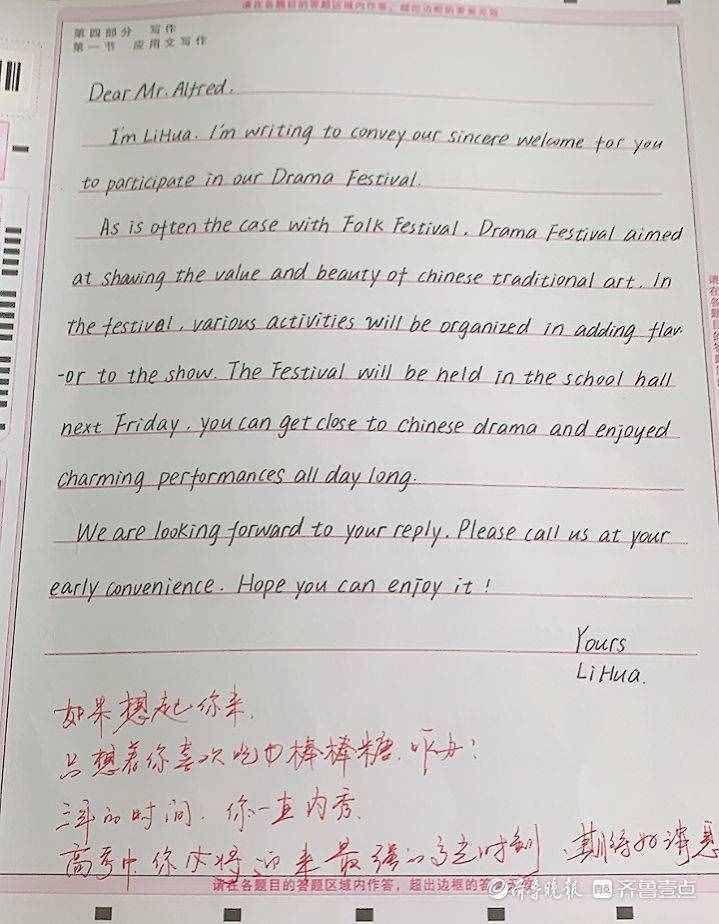 请在各题目的答题区域内作答,超出边框的答案无效
第四部分 写作
第一节 应用文写作
Dear Mr. Alfred.
I'm LiHua. I'm writing to convey our sincere welcome for you
to participate in our Drama Festival.
As is often the case with Folk Festival, Drama Festival aimed
at shaving the value and beauty of chinese traditional art. In
the festival, various activities will be organized in adding flav-
-or to the show. The Festival will be held in the school hall
next Friday, you can get close to chinese drama and enjoyed
charming performances all day long.
We are looking forward to your reply. Please call us at your
early convenience. Hope you can enjoy it!
Yours
LiHua.
如果想起你来,
只想着你喜欢吃的棒棒糖,咋办?
三年的时间,你一直内秀,
高考中你必将迎来最强的高光时刻,期待好消息
请在各题目的答题区域内作答,超出边框的答案无效
齐鲁晚报 齐鲁壹点